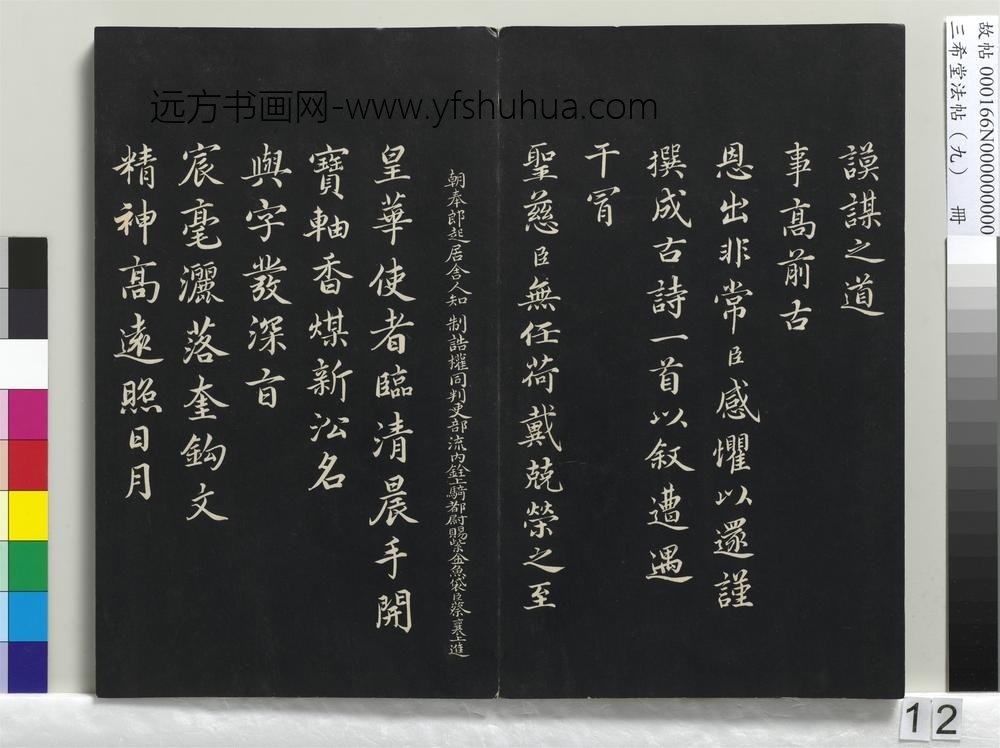 謨謀之道
事高前古
恩出非常臣感懼以還謹
撰成古詩一首以叙遭遇
干冒
聖慈臣無任荷戴兢榮之至
朝奉郎起居舍人知制誥權同判吏部流内銓上騎都尉賜紫金魚袋臣蔡襄上進
皇華使者臨清晨手開
寶軸香煤新沿名
與字發深㫖
宸毫灑落奎鈎文
精神高遠照日月
远方书画网-www.yfshuhua.com
故帖 000166N000000000
三希堂法帖（九） 冊
12